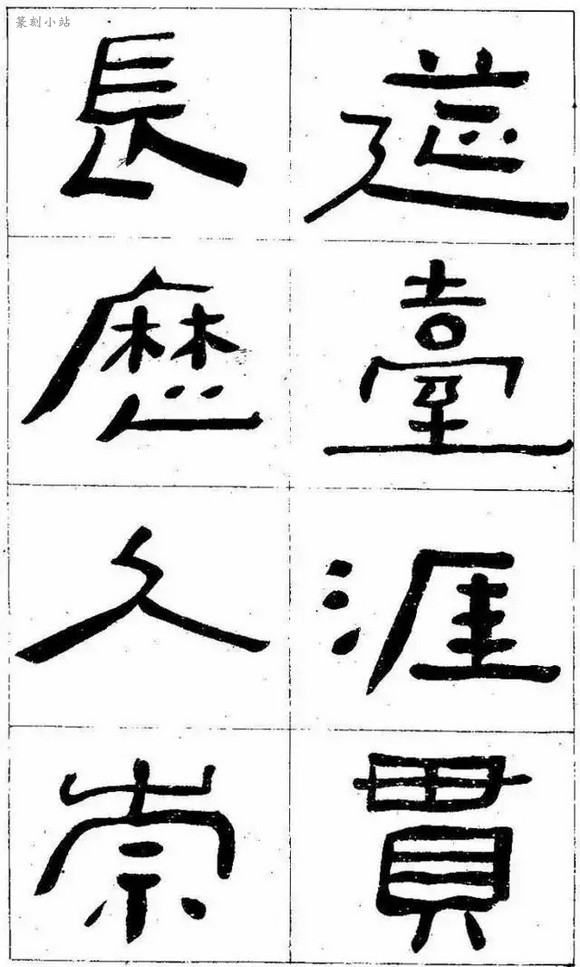 篆刻小站
莚臺涯貫
長歷久崇